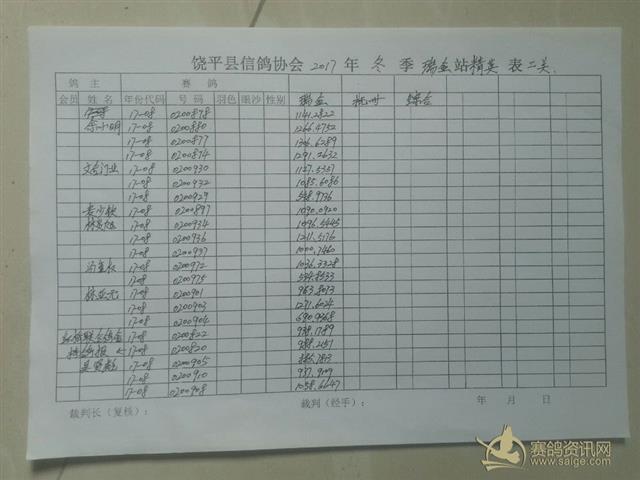 饶平县信鸽协会 2017 年 冬 季 瑞金站精英 表二关
鸽 主 赛 鸽
会员 姓 名 年份代码 号 码 羽色 眼沙 性别 瑞金 杭州 综合
17-08 0200878 1141.2822
余小明 17-08 0200880 1266.4752
17-08 0200877 1306.6289
17-08 0200874 1291.2632
文会门业 17-08 0200930 1127.5357
17-08 0200932 1085.6086
17-08 0200929 548.9736
17-08 0200897 1090.0920
17-08 0200934 1096.5445
17-08 0200936 1211.5176
17-08 0200937 1000.7460
17-08 0200972 1036.3328
17-08 0200975 534.8533
17-08 0200901 963.8013
17-08 0200903 1271.6024
17-08 0200904 690.9368
17-08 0200822 938.1789
17-08 0200820 988.2151
17-08 0200905
17-08 0200910 937.9109
17-08 0200908 1058.6647
裁判长（复核）： 裁判（经手）： 年 月 日
赛鸽资讯网
www.saige.com